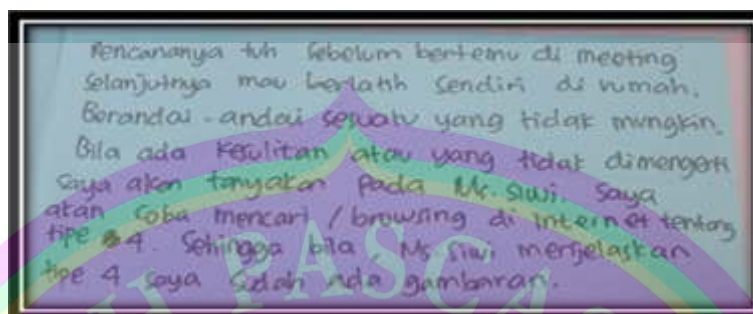 Rencananya tuh sebelum bertemu di meeting
selanjutnya mau berlatih sendiri di rumah.
Berandai-andai sesuatu yang tidak mungkin.
Bila ada kesulitan atau yang tidak dimengerti
saya akan tanyakan pada Ms. Siwi. Saya
akan coba mencari / browsing di internet tentang
tipe 4. Sehingga bila Ms. Siwi menjelaskan
tipe 4 saya sudah ada gambaran.
PASCA